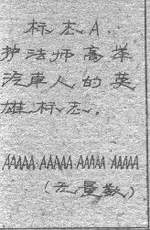 标志A
护法师高举
汽車人的英
雄标志。
AAAAA AAAAA AAAAA AAAAA
(无量数)